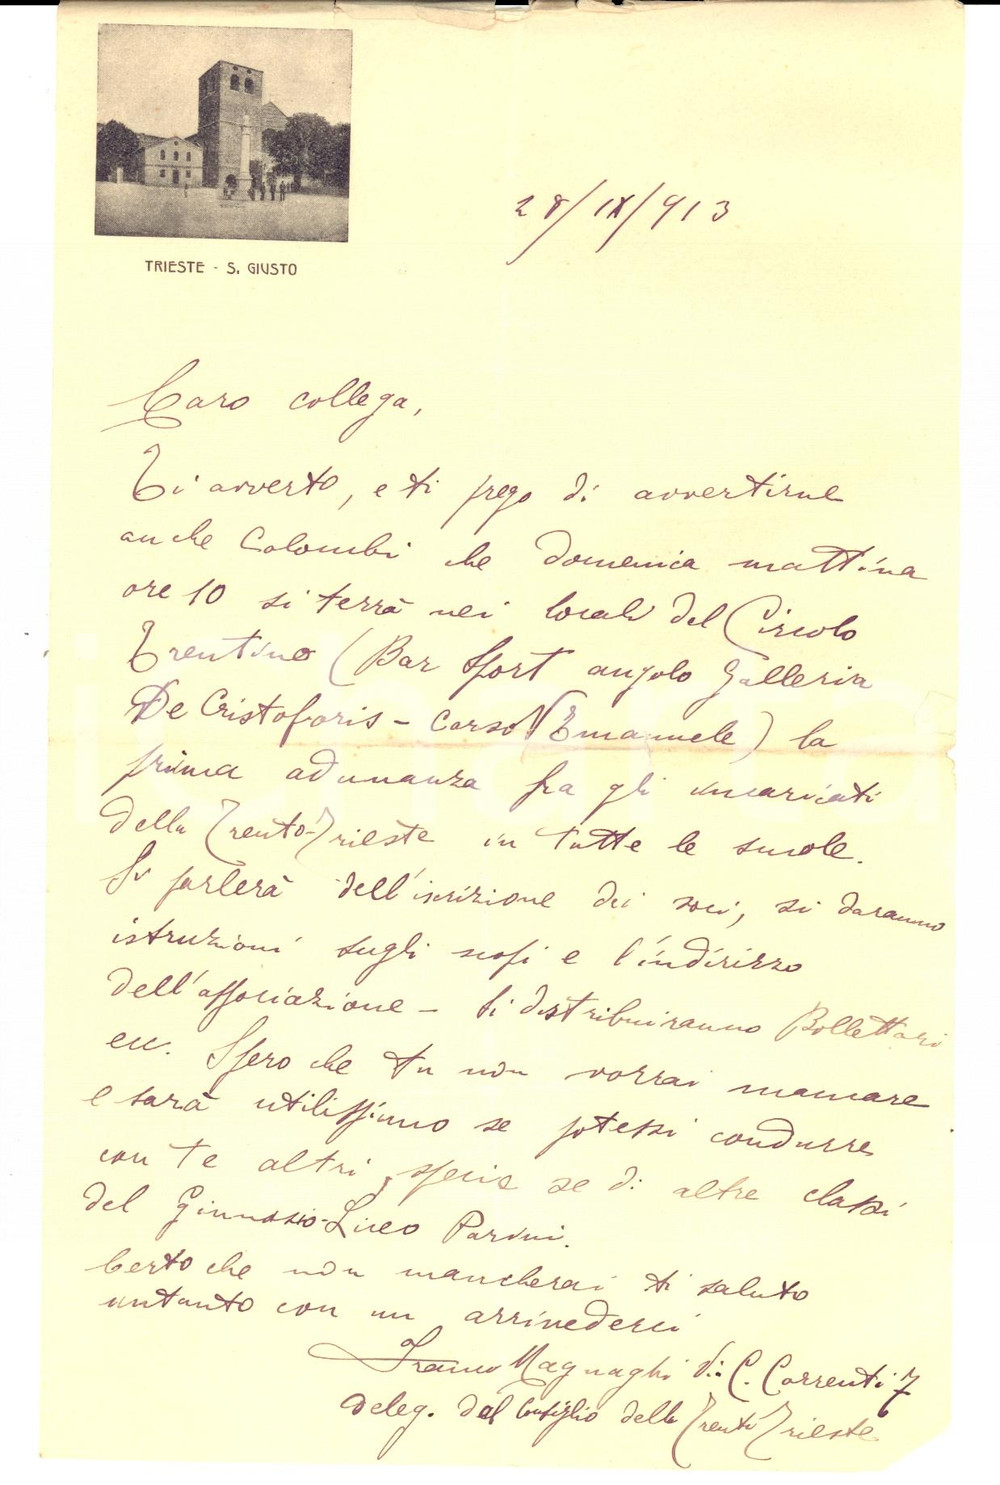 TRIESTE - S. GIUSTO
28/IX/913
Caro collega,
Ti avverto, e ti prego di avvertirne
anche Colombi che domenica mattina
ore 10 si terrà nei locali del Circolo
Trentino (Bar Sport angolo Galleria
De Cristoforis - Corso V Emanuele) la
prima adunanza fra gli incaricati
della Trento-Trieste in tutte le scuole.
Si parlerà dell'iscrizione dei soci, si daranno
istruzioni sugli scopi e l'indirizzo
dell'associazione - Si distribuiranno Bollettari
ecc. Spero che tu non vorrai mancare
e sarà utilissimo se potessi condurre
con te altri, specie se di altre classi
del Ginnasio-Liceo Parini.
Certo che non mancherai ti saluto
intanto con un arrivederci
Franco Magnaghi di: C. Correnti 7
deleg. dal Consiglio della Trento Trieste